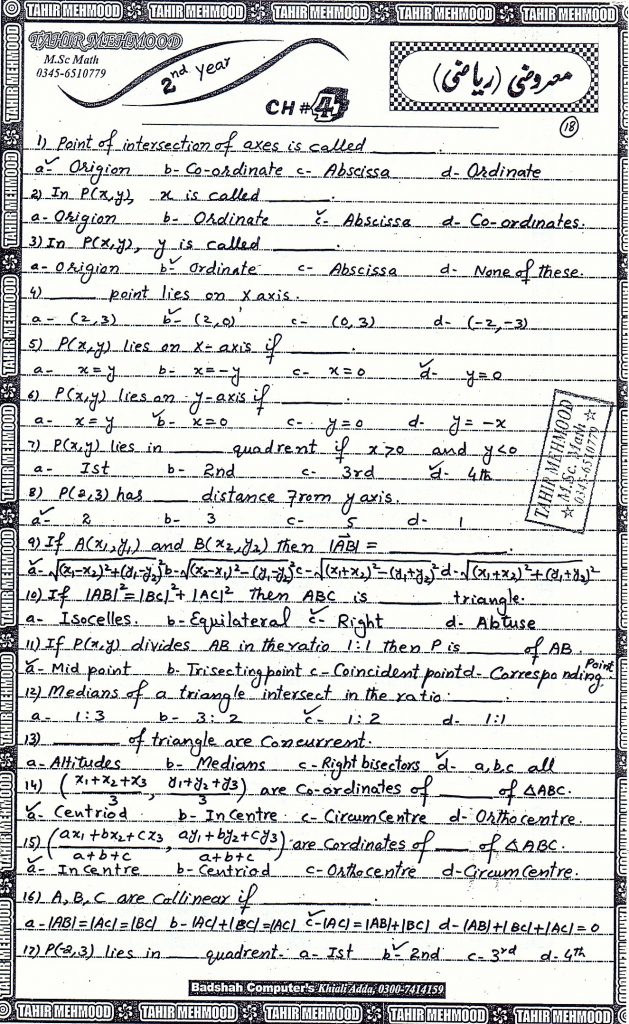 TAHIR MEHMOOD TAHIR MEHMOOD TAHIR MEHMOOD TAHIR MEHMOOD TAHIR MEHMOOD
TAHIR MEHMOOD
M.Sc Math
0345-6510779
2nd year
CH # 4
معروضی (ریاضی)
18
1) Point of intersection of axes is called ______.
a- Origion b- Co-ordinate c- Abscissa d- Ordinate
2) In P(x,y), x is called ______.
a- Origion b- Ordinate c- Abscissa d- Co-ordinates.
3) In P(x,y), y is called ______.
a- Origion b- Ordinate c- Abscissa d- None of these.
4) ______ point lies on x axis.
a- (2,3) b- (2,0) c- (0,3) d- (-2,-3)
5) P(x,y) lies on x-axis if ______.
a- x=y b- x=-y c- x=0 d- y=0
6) P(x,y) lies on y-axis if ______.
a- x=y b- x=0 c- y=0 d- y=-x
7) P(x,y) lies in ______ quadrent if x>0 and y<0
a- Ist b- 2nd c- 3rd d- 4th
8) P(2,3) has ______ distance from y axis.
a- 2 b- 3 c- 5 d- 1
9) If A(x₁,y₁) and B(x₂,y₂) then |AB| = ______.
a- √(x₁-x₂)²+(y₁-y₂)² b- √(x₂-x₁)²-(y₁-y₂)² c- √(x₁+x₂)²-(y₁+y₂)² d- √(x₁+x₂)²+(y₁+y₂)²
10) If |AB|²=|BC|²+|AC|² then ABC is ______ triangle.
a- Isocelles. b- Equilateral c- Right d- Abtuse
11) If P(x,y) divides AB in the ratio 1:1 then P is ______ of AB.
a- Mid point b- Trisecting point c- Coincident point d- Corresponding Point.
12) Medians of a triangle intersect in the ratio: ______.
a- 1:3 b- 3:2 c- 1:2 d- 1:1
13) ______ of triangle are Concurrent.
a- Altitudes b- Medians c- Right bisectors d- a,b,c all
14) (x₁+x₂+x₃/3, y₁+y₂+y₃/3) are Co-ordinates of ______ of △ABC.
a- Centriod b- In Centre c- Circum Centre d- Orthocentre.
15) (ax₁+bx₂+cx₃/a+b+c, ay₁+by₂+cy₃/a+b+c) are Cordinates of ______ of △ABC.
a- In Centre b- Centriod c- Orthocentre d- Circum Centre.
16) A,B,C are Collinear if ______.
a- |AB|=|AC|=|BC| b- |AC|+|BC|=|AC| c- |AC|=|AB|+|BC| d- |AB|+|BC|+|AC|=0
17) P(-2,3) lies in ______ quadrent. a- Ist b- 2nd c- 3rd d- 4th
TAHIR MEHMOOD
M.Sc. Math
0345-6510779
Badshah Computer's Khiali Adda, 0300-7414159
TAHIR MEHMOOD TAHIR MEHMOOD TAHIR MEHMOOD TAHIR MEHMOOD TAHIR MEHMOOD